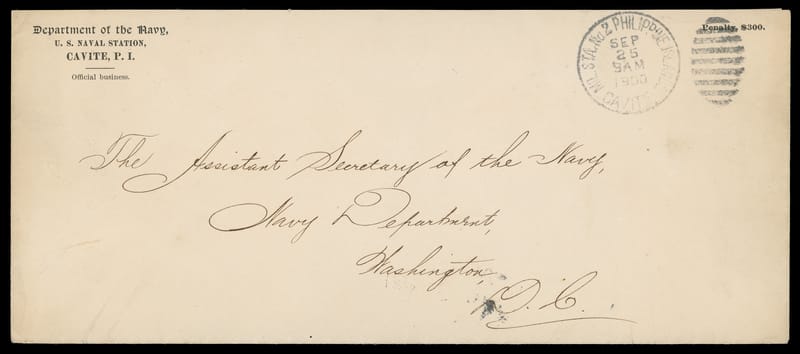 Department of the Navy,
U. S. NAVAL STATION,
CAVITE, P. I.
Official business.
MIL. STA. No. 2 PHILIPPINE
SEP
25
9AM
1900
CAVITE
Penalty, $300.
The Assistant Secretary of the Navy,
Navy Department,
Washington,
D. C.